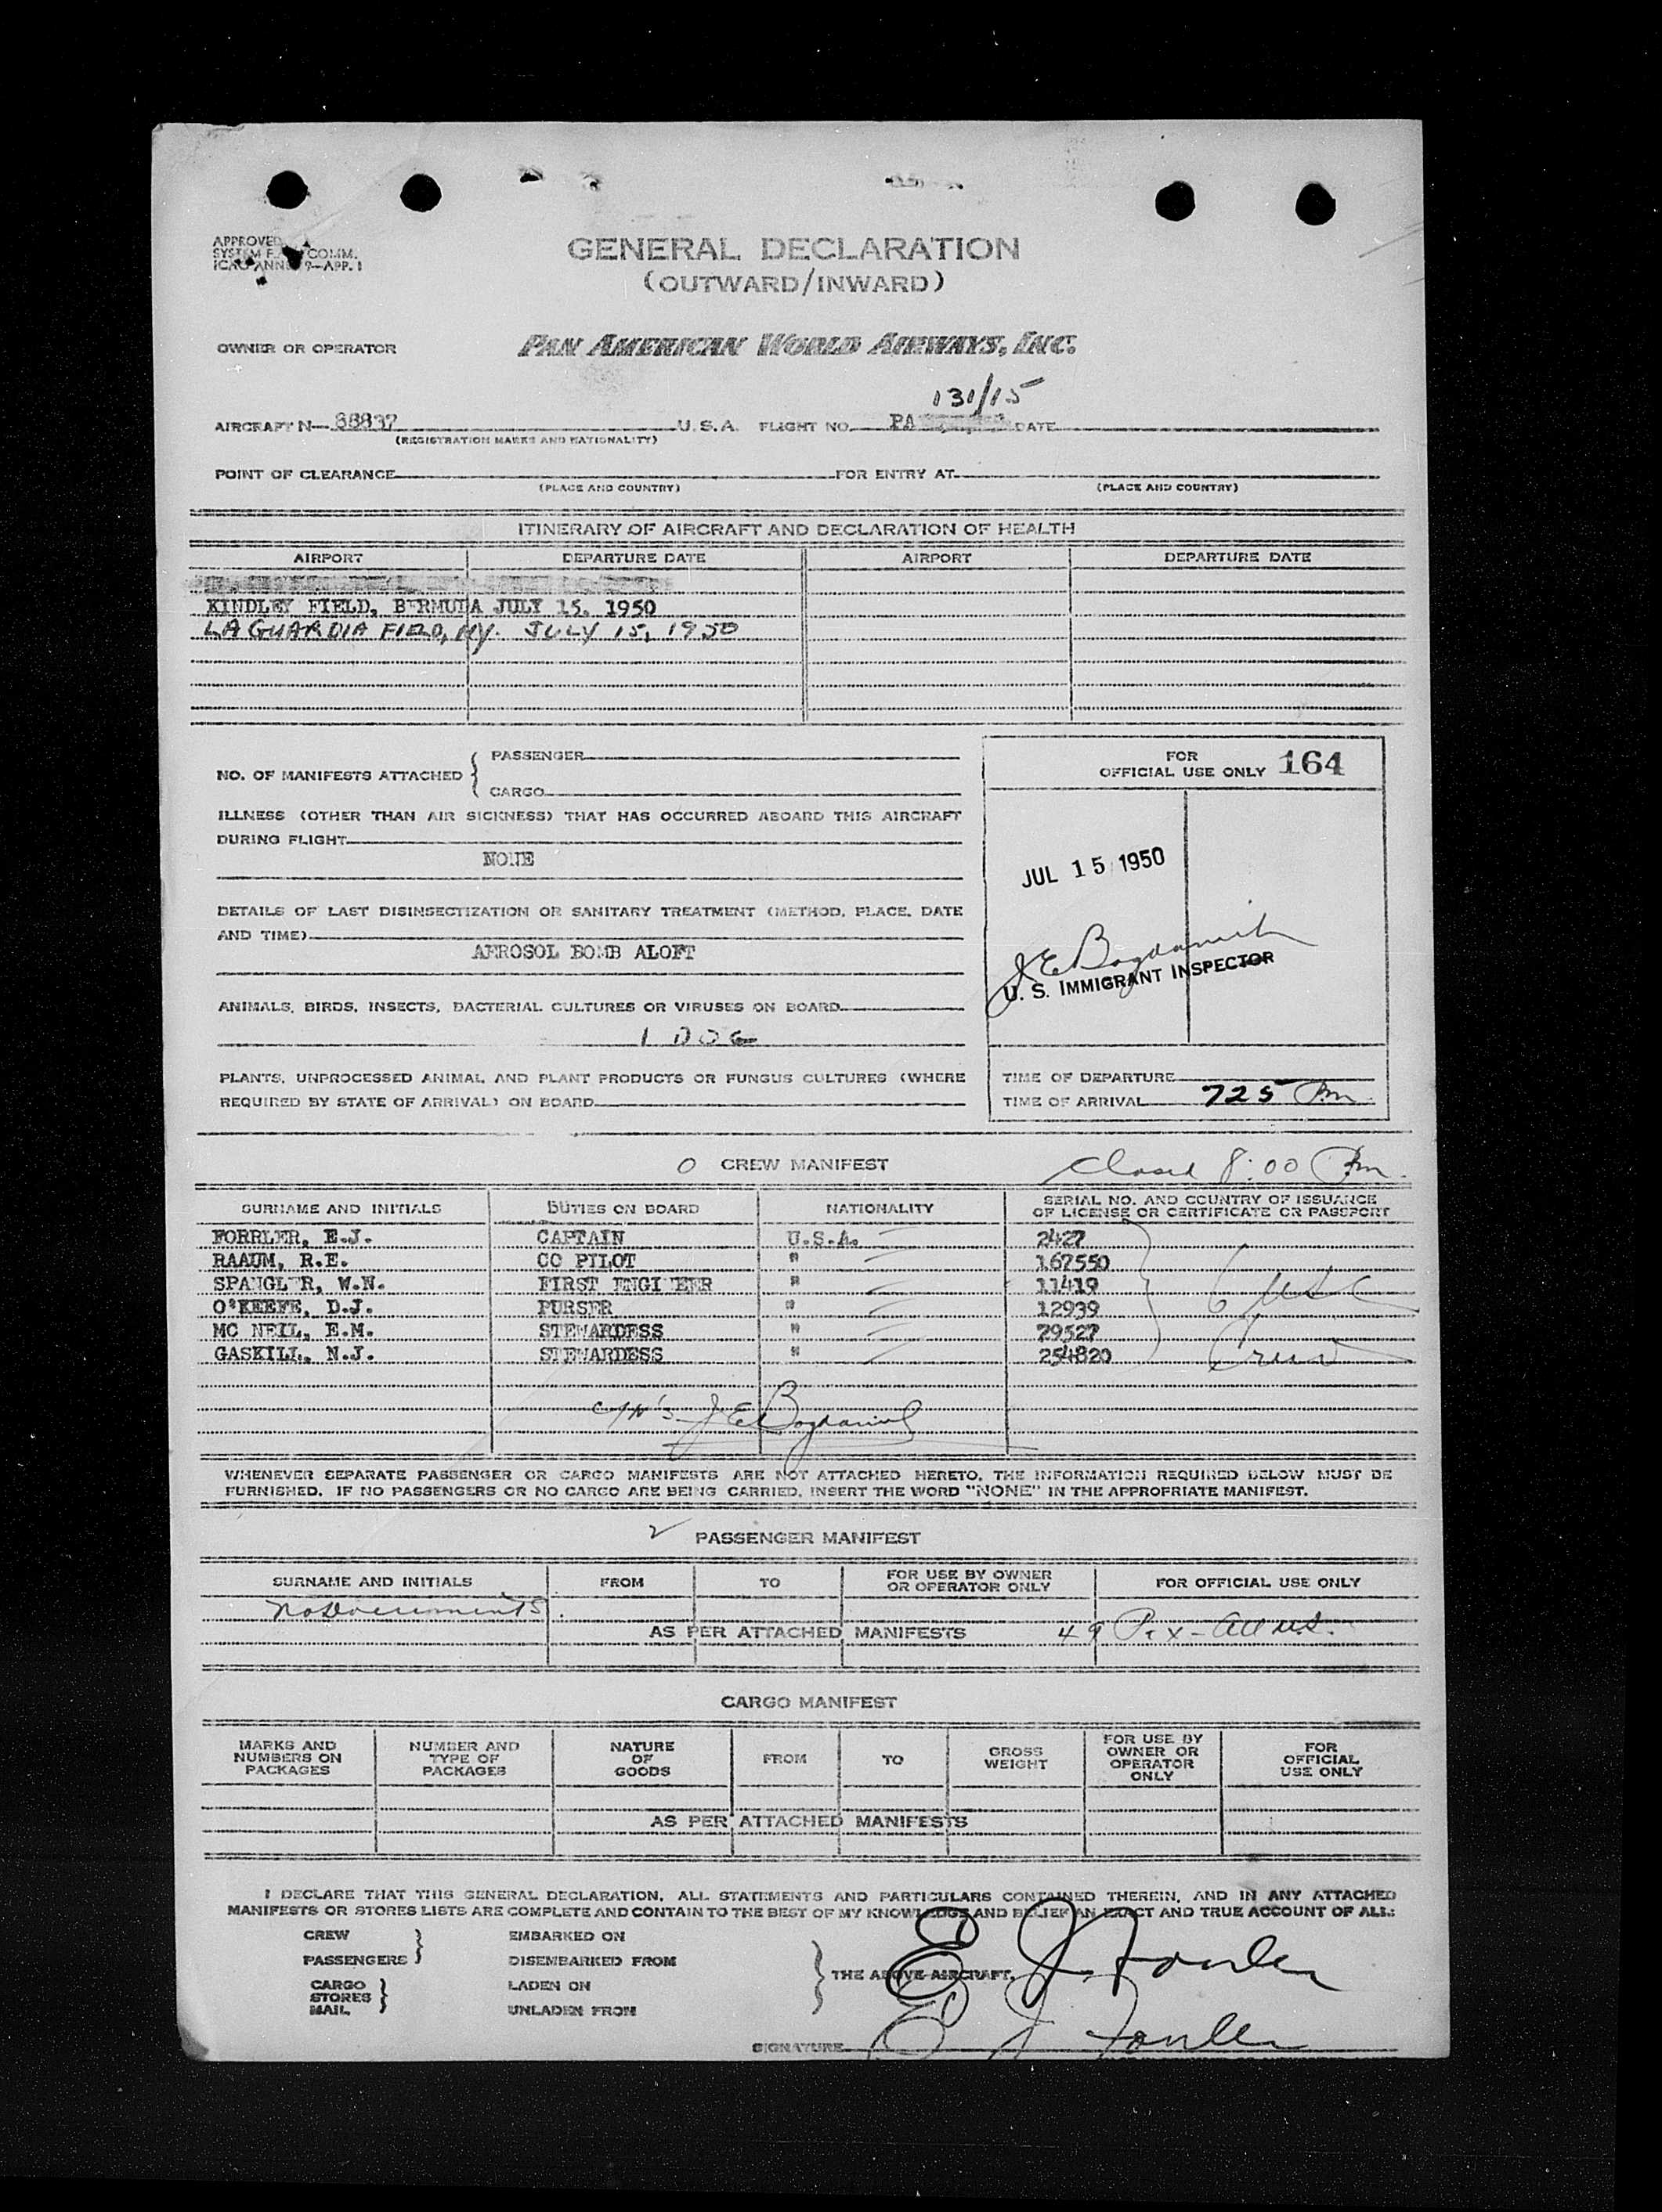 APPROVED
SYSTEM F. COMM.
ICAO ANNEX 9—APP. 1
GENERAL DECLARATION
(OUTWARD/INWARD)
OWNER OR OPERATOR PAN AMERICAN WORLD AIRWAYS, INC.
131/15
AIRCRAFT N— 88837 U.S.A. FLIGHT NO. PA DATE
(REGISTRATION MARKS AND NATIONALITY)
POINT OF CLEARANCE FOR ENTRY AT
(PLACE AND COUNTRY) (PLACE AND COUNTRY)
ITINERARY OF AIRCRAFT AND DECLARATION OF HEALTH
AIRPORT DEPARTURE DATE AIRPORT DEPARTURE DATE
KINDLEY FIELD, BERMUDA JULY 15, 1950
LA GUARDIA FIELD, NY. JULY 15, 1950
NO. OF MANIFESTS ATTACHED { PASSENGER
CARGO
FOR
OFFICIAL USE ONLY 164
ILLNESS (OTHER THAN AIR SICKNESS) THAT HAS OCCURRED ABOARD THIS AIRCRAFT
DURING FLIGHT
NONE
JUL 15 1950
DETAILS OF LAST DISINSECTIZATION OR SANITARY TREATMENT (METHOD, PLACE, DATE
AND TIME)
AEROSOL BOMB ALOFT
U. S. IMMIGRANT INSPECTOR
ANIMALS, BIRDS, INSECTS, BACTERIAL CULTURES OR VIRUSES ON BOARD
1 DOG
PLANTS, UNPROCESSED ANIMAL AND PLANT PRODUCTS OR FUNGUS CULTURES (WHERE
REQUIRED BY STATE OF ARRIVAL) ON BOARD
TIME OF DEPARTURE
TIME OF ARRIVAL 725 Pm
0 CREW MANIFEST Closed 8:00 Pm.
SURNAME AND INITIALS DUTIES ON BOARD NATIONALITY SERIAL NO. AND COUNTRY OF ISSUANCE
OF LICENSE OR CERTIFICATE OR PASSPORT
FORRLER, E.J. CAPTAIN U.S.A. 2427
RAAUM, R.E. CO PILOT " 167550
SPANGLER, W.N. FIRST ENGINEER " 11419 6 USC
O'KEEFE, D.J. PURSER " 12939
MC NEIL, E.M. STEWARDESS " 79527
GASKILL, N.J. STEWARDESS " 254820 Crew
WHENEVER SEPARATE PASSENGER OR CARGO MANIFESTS ARE NOT ATTACHED HERETO, THE INFORMATION REQUIRED BELOW MUST BE
FURNISHED. IF NO PASSENGERS OR NO CARGO ARE BEING CARRIED, INSERT THE WORD "NONE" IN THE APPROPRIATE MANIFEST.
PASSENGER MANIFEST
SURNAME AND INITIALS FROM TO FOR USE BY OWNER
OR OPERATOR ONLY FOR OFFICIAL USE ONLY
no documents.
AS PER ATTACHED MANIFESTS 49 Pax - all U.S.
CARGO MANIFEST
MARKS AND
NUMBERS ON
PACKAGES NUMBER AND
TYPE OF
PACKAGES NATURE
OF
GOODS FROM TO GROSS
WEIGHT FOR USE BY
OWNER OR
OPERATOR
ONLY FOR
OFFICIAL
USE ONLY
AS PER ATTACHED MANIFESTS
I DECLARE THAT THIS GENERAL DECLARATION, ALL STATEMENTS AND PARTICULARS CONTAINED THEREIN, AND IN ANY ATTACHED
MANIFESTS OR STORES LISTS ARE COMPLETE AND CONTAIN TO THE BEST OF MY KNOWLEDGE AND BELIEF AN EXACT AND TRUE ACCOUNT OF ALL:
CREW EMBARKED ON
PASSENGERS DISEMBARKED FROM
THE ABOVE AIRCRAFT.
CARGO LADEN ON
STORES
MAIL UNLADEN FROM
SIGNATURE